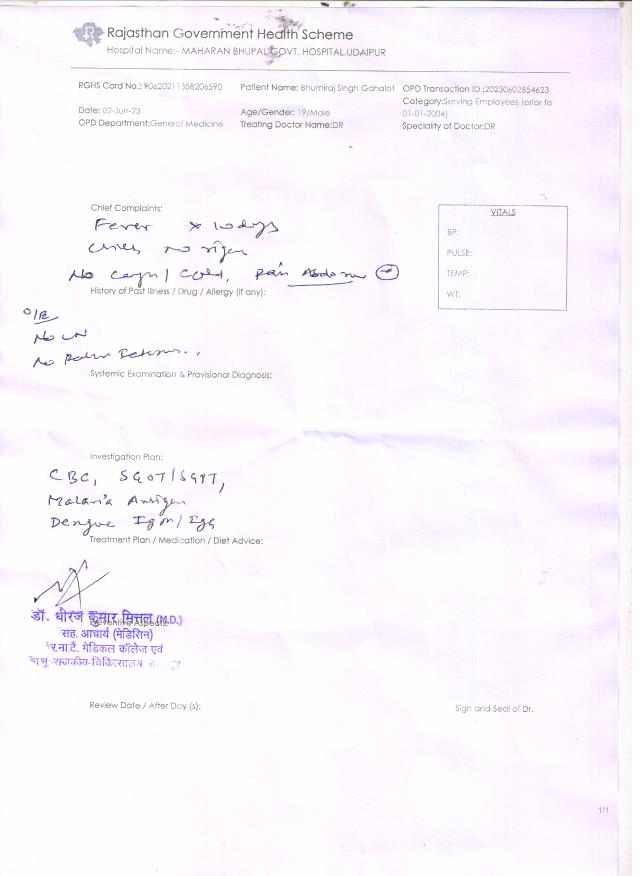 Rajasthan Government Health Scheme
Hospital Name:- MAHARAN BHUPAL GOVT. HOSPITAL,UDAIPUR
RGHS Card No.: 90620211358206590 Patient Name: Bhumiraj Singh Gahalot OPD Transaction ID :20230602854623
Category:Serving Employees (prior to 01-01-2004)
Date: 02-Jun-23 Age/Gender: 19/Male
OPD Department:General Medicine Treating Doctor Name:DR Speciality of Doctor:DR
Chief Complaints:
Fever x 10 days
no rigor
No Cough / Cold, Pain Abdomen
History of Past Illness / Drug / Allergy (if any):
VITALS
BP:
PULSE:
TEMP:
WT:
O/E
No
No Icterus
Systemic Examination & Provisional Diagnosis:
Investigation Plan:
CBC, SGOT/SGPT,
Malaria Antigen
Dengue IgM/IgG
Treatment Plan / Medication / Diet Advice:
डॉ. धीरज कुमार मित्तल (M.D.)
सह. आचार्य (मेडिसिन)
र.ना.टै. मेडिकल कॉलेज एवं
राजकीय चिकित्सालय
Review Date / After Day (s):
Sign and Seal of Dr.
1/1